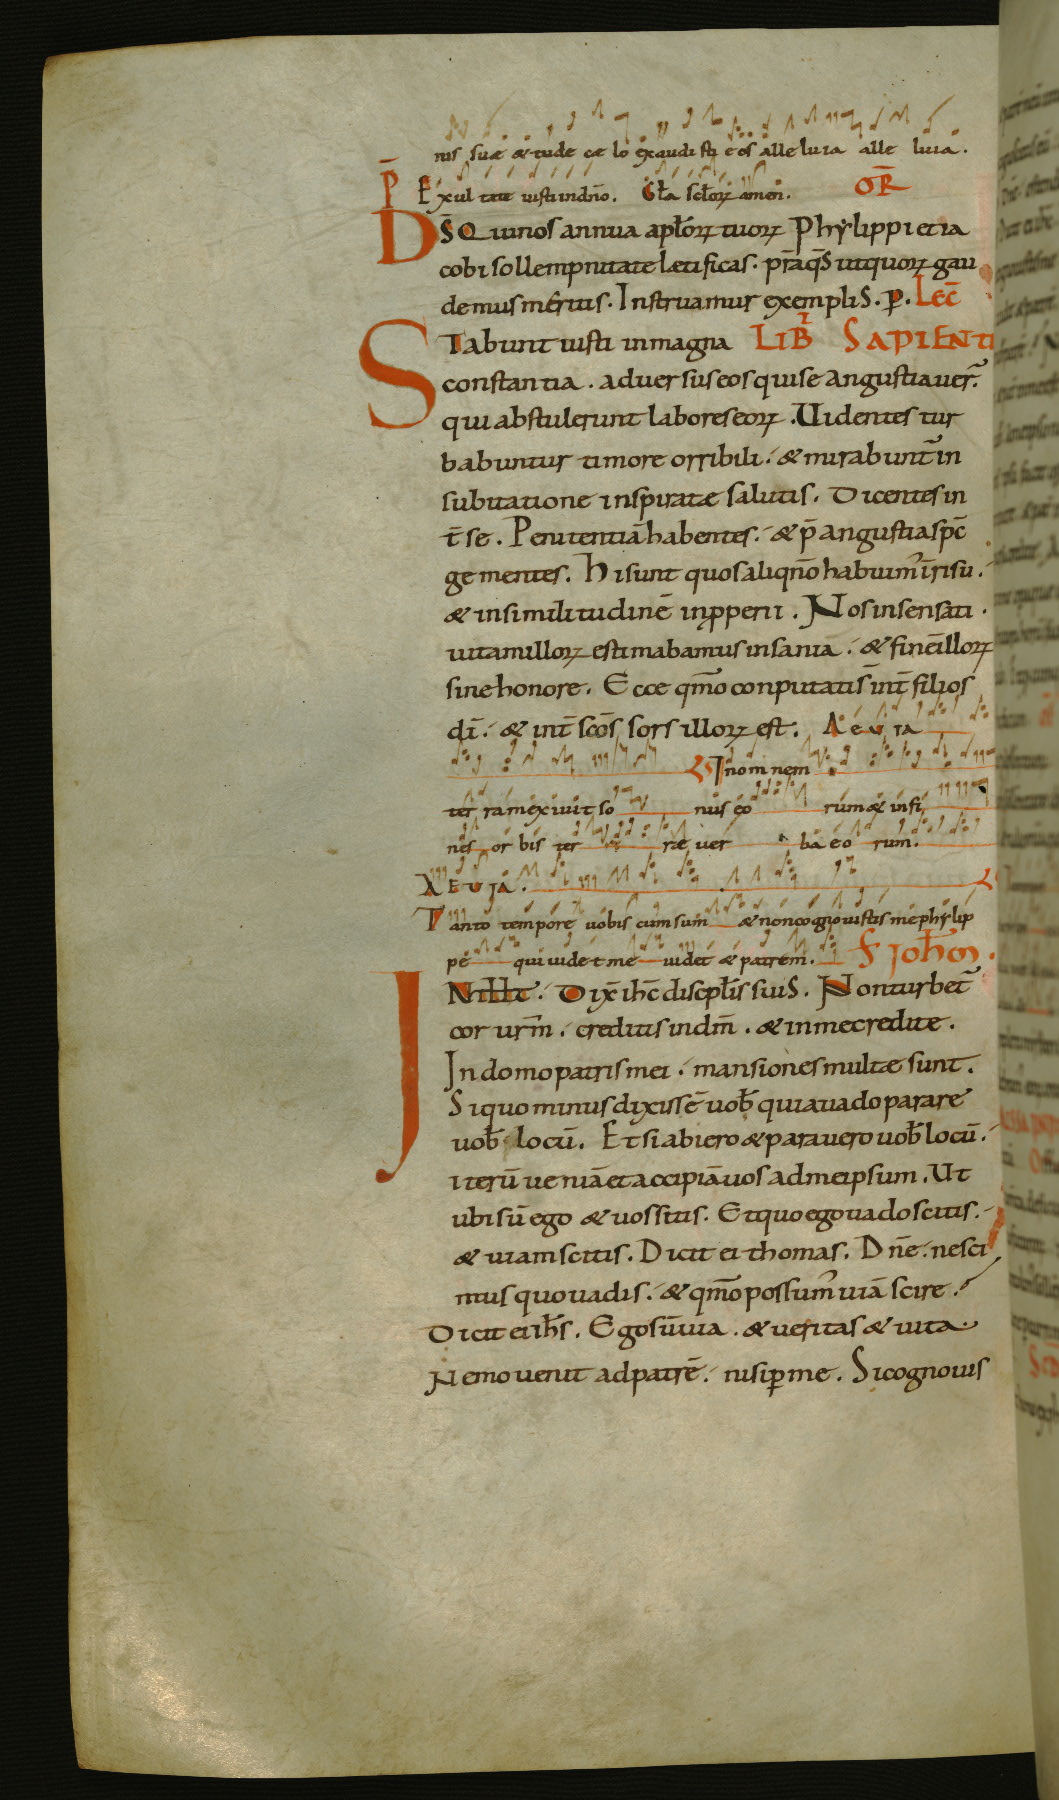 nis suæ & tu de cæ lo exaudi sti eos alle luia alle luia.
P̄ Exul tate iusti in dn̄o. Gl̄a scl̄orꝝ amen. OR̄
D̄S Qui nos annua apl̄orꝝ tuorꝝ Phylippi et ia
cobi sollempnitate lætificas. pr̄a q̄s ut quorꝝ gau
demus meritis. Instruamur exempliS. ꝑ. Lec̄
STabunt iusti in magna LIBRI SAPIENTI
constantia. aduersus eos qui se angustiauer̄.
qui abstulerunt labores eorꝝ. Uidentes tur
babuntur timore orribili. & mirabunt̄ in
subitatione insperatæ salutis. Dicentes in
t̄ se. Penitentiā habentes. & p̄ angustia sp̄c
gementes. Hi sunt quos aliqn̄o habuim' ī risu.
& in similitudinē inpperii. Nos insensati.
uitam illorꝝ estimabamus insaniā. & finē illorꝝ
sine honore. Ecce qm̄o conputati s̄ int̄ filios
dī. & int̄ scōs sors illorꝝ est. A e u ia
In omnem
ter ram exiuit so nus eo rum & in fi
nes or bis ter ræ uer ba eo rum.
A E U IA.
Tanto tempore uobis cum sum & non cognouistis me phylip
pe qui uidet me uidet & patrem. S̄ Joh̄em.
IN illt̄. Dix̄ ih̄c discipl̄is suiS. Non turbet̄
cor ur̄m. creditis in dm̄. & in me credite.
In domo patris mei. mansiones multæ sunt.
Si quo minus dixissē uob̄ quia uado parare
uob̄ locū. Et si abiero & parauero uob̄ locū.
iterū ueniā et accipiā uos ad me ipsum. Ut
ubi sū ego & uos sitis. Et quo ego uado scitis.
& uiam scitis. Dicit ei thomas. Dn̄e. nesci
mus quo uadis. & qm̄o possum' uiā scire.
Dicit ei ih̄s. Ego sū uia. & ueritas & uita.
Nemo uenit ad patrē. nisi ꝑ me. Si cognouis